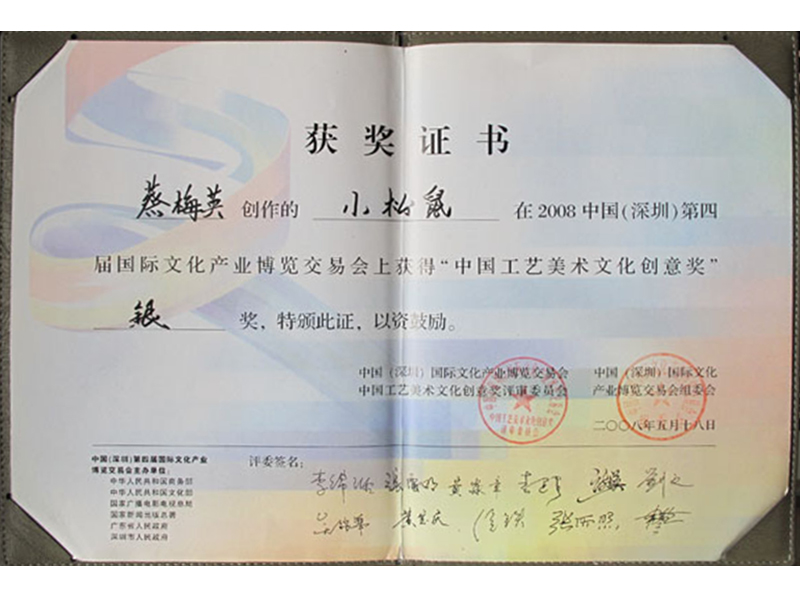 获奖证书
蔡梅英 创作的 小松鼠 在2008中国(深圳)第四
届国际文化产业博览交易会上获得“中国工艺美术文化创意奖”
银 奖，特颁此证，以资鼓励。
中国（深圳）国际文化产业博览交易会
中国工艺美术文化创意奖评审委员会
中国（深圳）国际文化
产业博览交易会组委会
二〇〇八年五月十八日
中国(深圳)第四届国际文化产业
博览交易会主办单位：
中华人民共和国商务部
中华人民共和国文化部
国家广播电影电视总局
国家新闻出版总署
广东省人民政府
深圳市人民政府
评委签名：